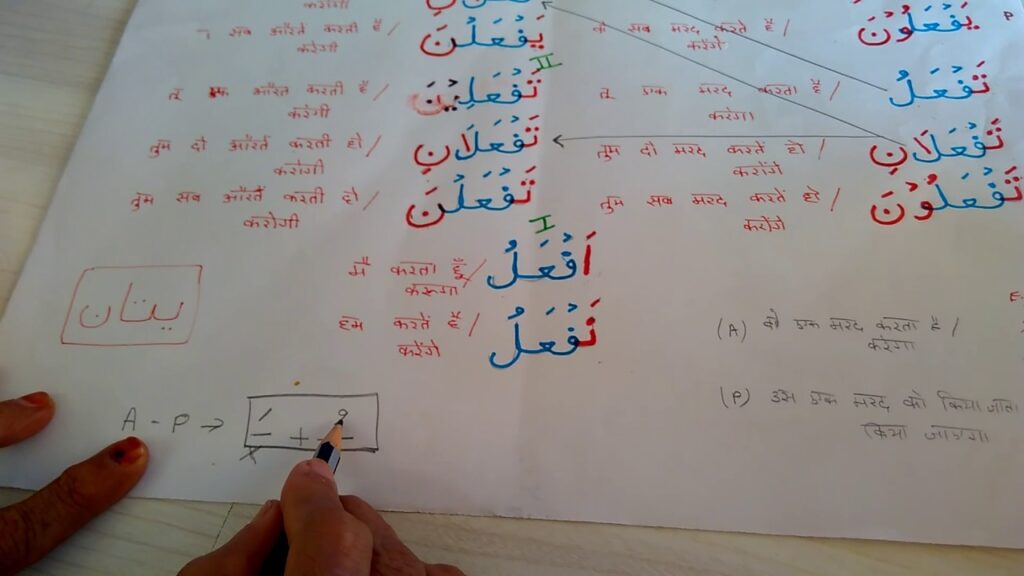 करोगी
يَفْعَلْنَ
सब औरतें करती हैं /
करेंगी
يَفْعَلُوْنَ
वो सब मरद करते हैं /
करेंगे
P
II
تَفْعَلِيْنَ
तू एक औरत करती है /
करेगी
تَفْعَلُ
तू एक मरद करता है /
करेगा
تَفْعَلَانِ
तुम दो औरतें करती हो /
करोगी
تَفْعَلَانِ
तुम दो मरद करतें हो /
करोंगे
تَفْعَلْنَ
तुम सब औरतें करती हो /
करोगी
تَفْعَلُوْنَ
तुम सब मरद करतें हो /
करोंगे
I
اَفْعَلُ
मैं करता हूँ /
करूगा
نَفْعَلُ
हम करतें हैं /
करेंगे
يتان
A - P →
+
(A) वो एक मरद करता है /
करेगा
(P) उस एक मरद को किया जाता
किया जाएगा